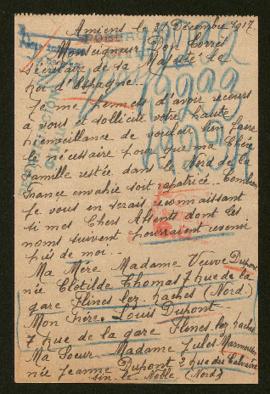 Amiens le 31 Décembre 1917
Monseigneur Dos Torrès
Secrétaire de sa Majesté le
Roi d'Espagne.
Je me permets d'avoir recours
à vous et sollicite votre haute
bienveillance de vouloir bien faire
le nécessaire pour que ma Chère
Famille restée dans le Nord de la
France envahie soit rapatriée. Combien
je vous en serais reconnaissant
si mes Chers Absents dont les
noms suivent pourraient revenir
près de moi..
Ma Mère Madame Veuve Dupont
née Clotilde Thomas 7 rue de la
gare Flines lez Raches (Nord)
Mon frère Louis Dupont
7 rue de la gare Flines lez Raches
Ma Soeur Madame Jules
née Jeanne Dupont 2 rue du Calvaire
sin le Noble (Nord)